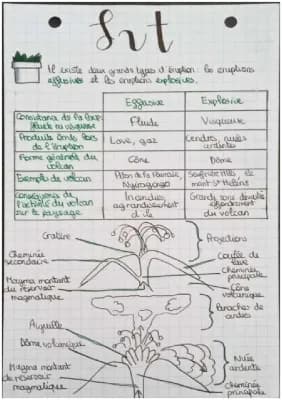 Svt
Il existe deux grands types d'éruption : les éruptions
effusives et les éruptions explosives.
Effusive Explosive
Consistance de la lave: fluide ou visqueuse Fluide Visqueuse
Produits émis lors de l'éruption Lave, gaz Cendres, nuées ardentes
Forme générale du volcan Cône Dôme
Exemple de volcan Piton de la Fournaise, Nyiragongo Soufrière Hills, le mont St Helens
Conséquences de l'activité du volcan sur le paysage Incendies, agrandissement d'île Grands effondrement du volcan
Cratère
Projections
Cheminée
secondaire
Coulée de
lave
Cheminée
principale
Magma montant
du réservoir
magmatique
Cône
volcanique
Panaches de
cendres
Aiguille
Dôme volcanique
Nuée
ardente
Magma montant
de réservoir
magmatique
Cheminée
principale